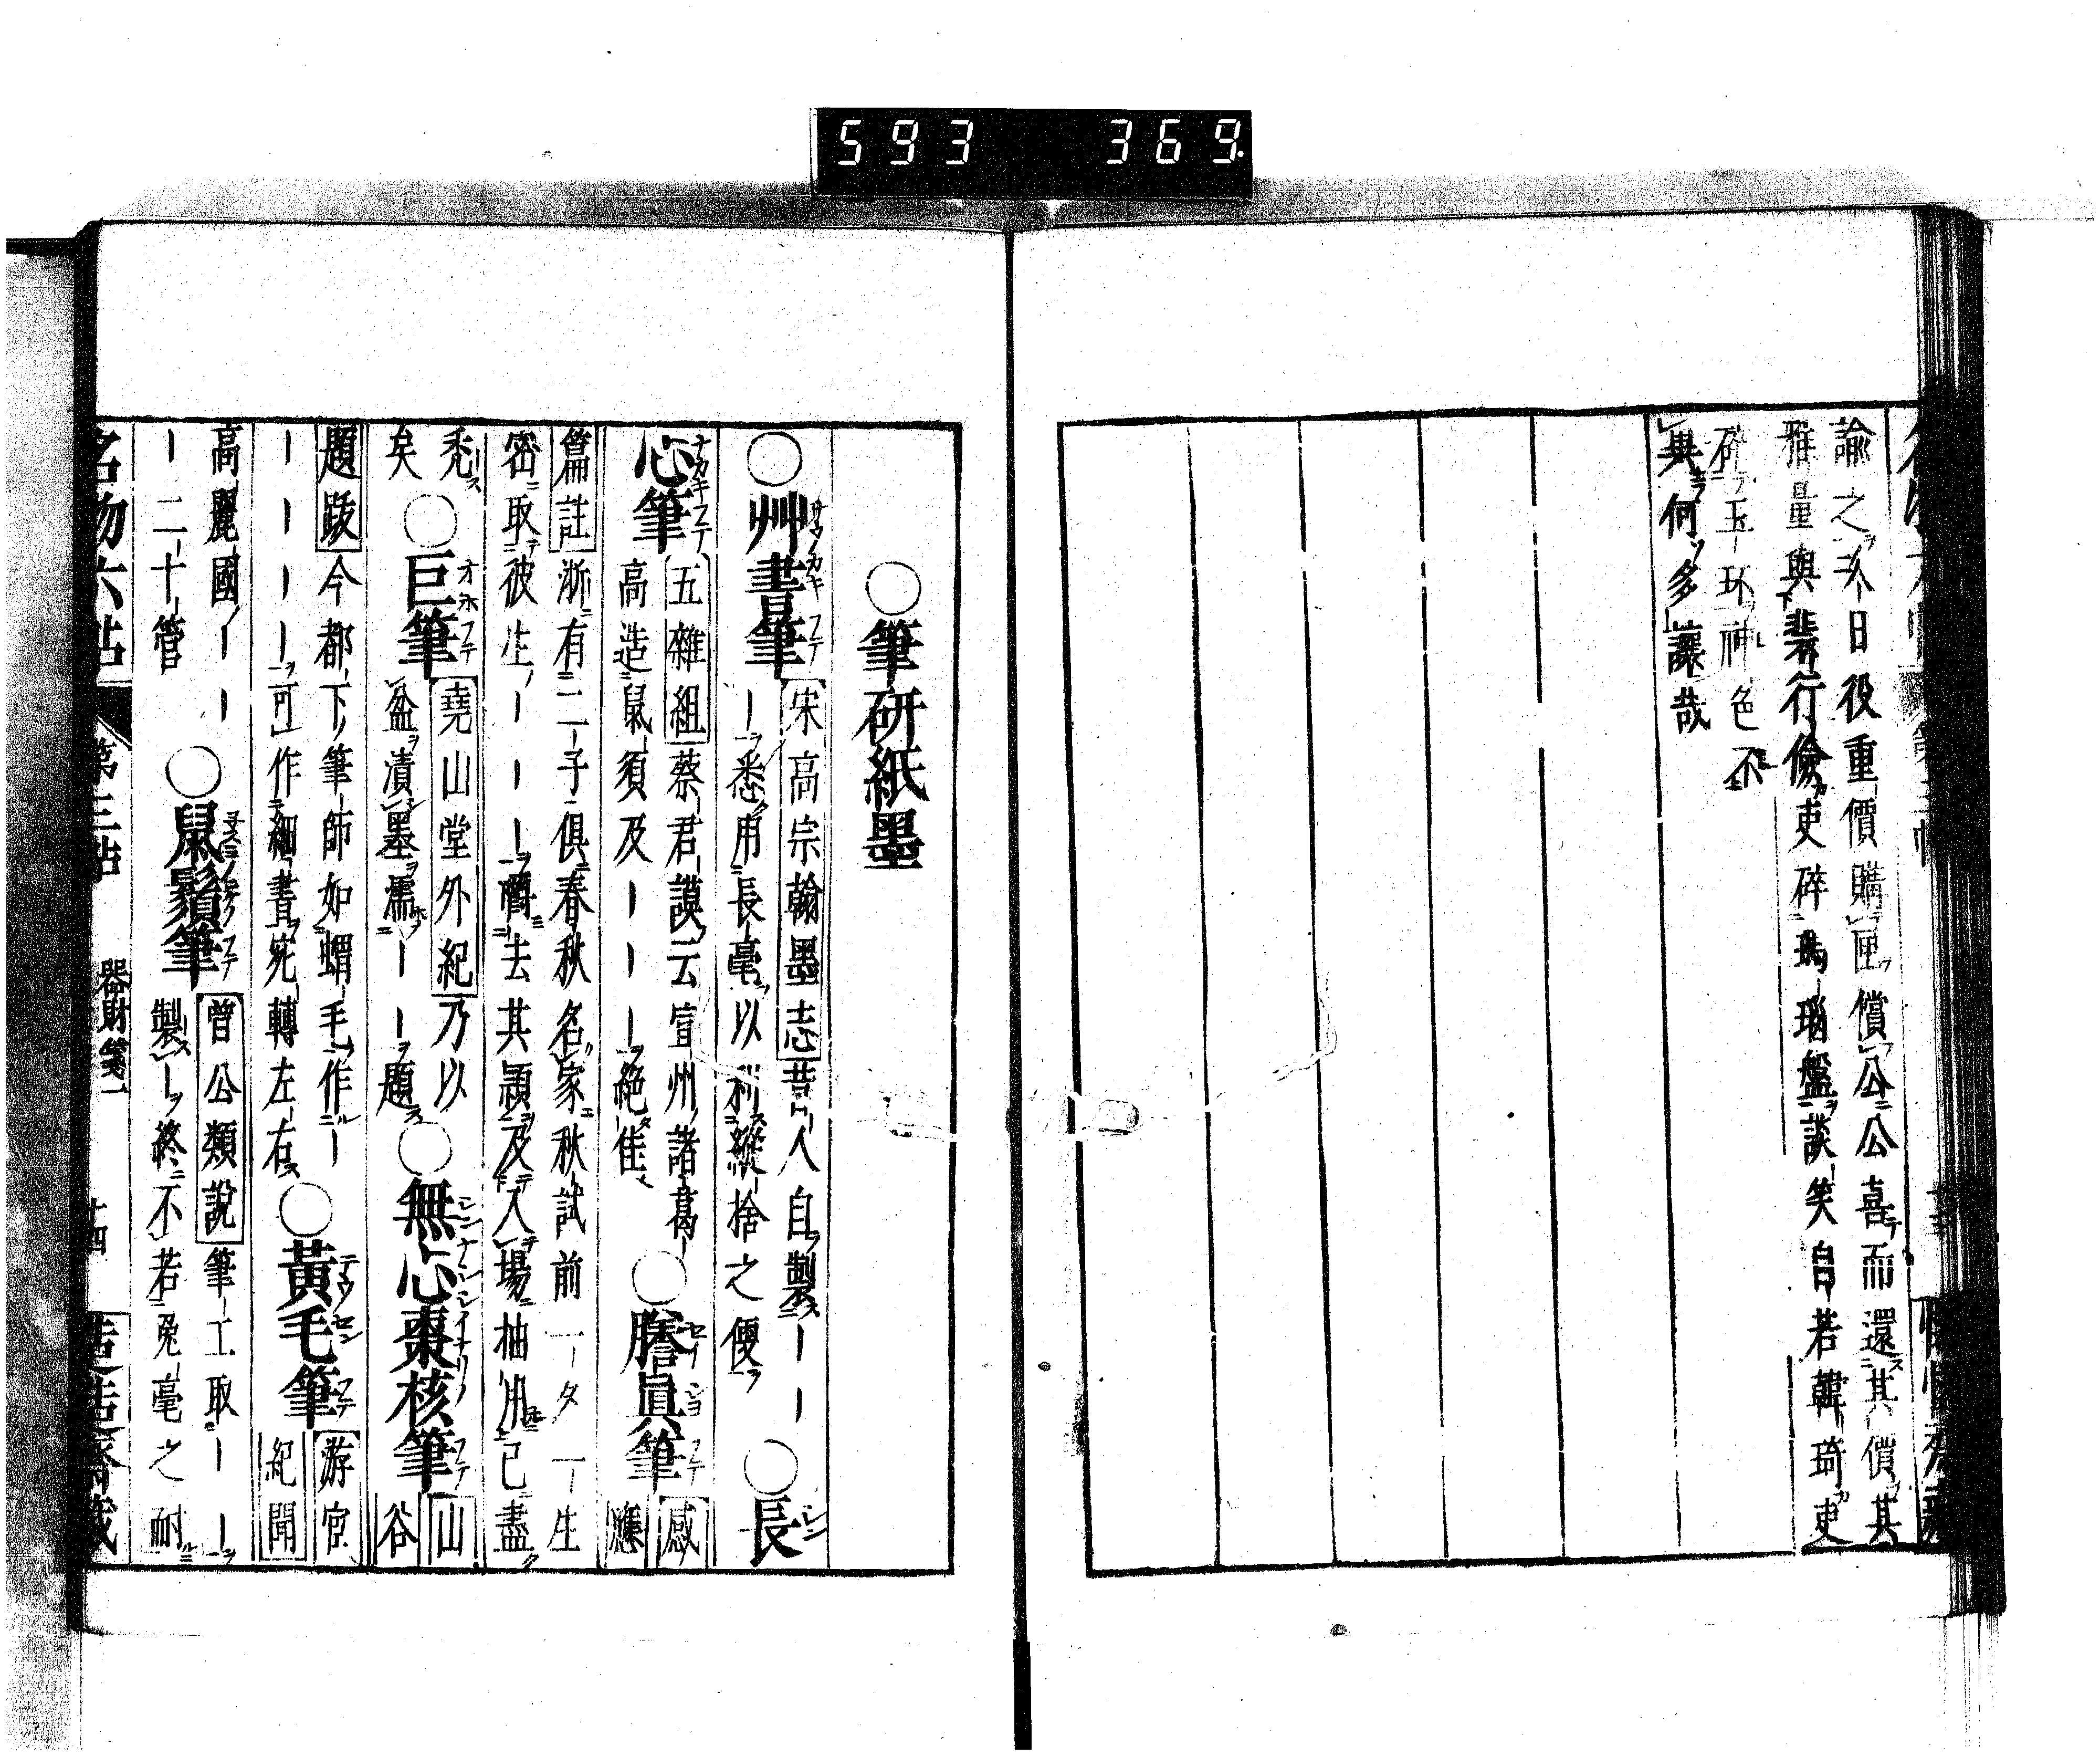 593 369.
諭之久日役重價購匣償公公喜而還其償其
雅量與裴行儉吏碎瑪瑙盤談笑自若韓琦吏
碎玉环神色不
與何多讓哉
○筆研紙墨
○艸書筆 宋高宗翰墨志昔人自製ーー
ー悉用長毫以利縱捨之便 ○長
心筆 五雜組蔡君謨云宣州諸葛
高造鼠須及ーーー絕佳 ○謄眞筆 感應
篇註浙有二子俱春秋名家秋試前一夕一生
密取彼生ーーー嚼去其頴及入場抽用已盡
禿矣 ○巨筆 堯山堂外紀乃以
盆漬墨濡ーー題 ○無心棗核筆 山谷
題跋今都下筆師如蝟毛作ー
ーーーー可作細書宛轉左右 ○黃毛筆 游宦紀聞
高麗國ーー
ー二十管 ○鼠鬚筆 曾公類說筆工取ーー
製ー終不若兔毫之耐
名物六帖 第三帖 器財箋一 十四